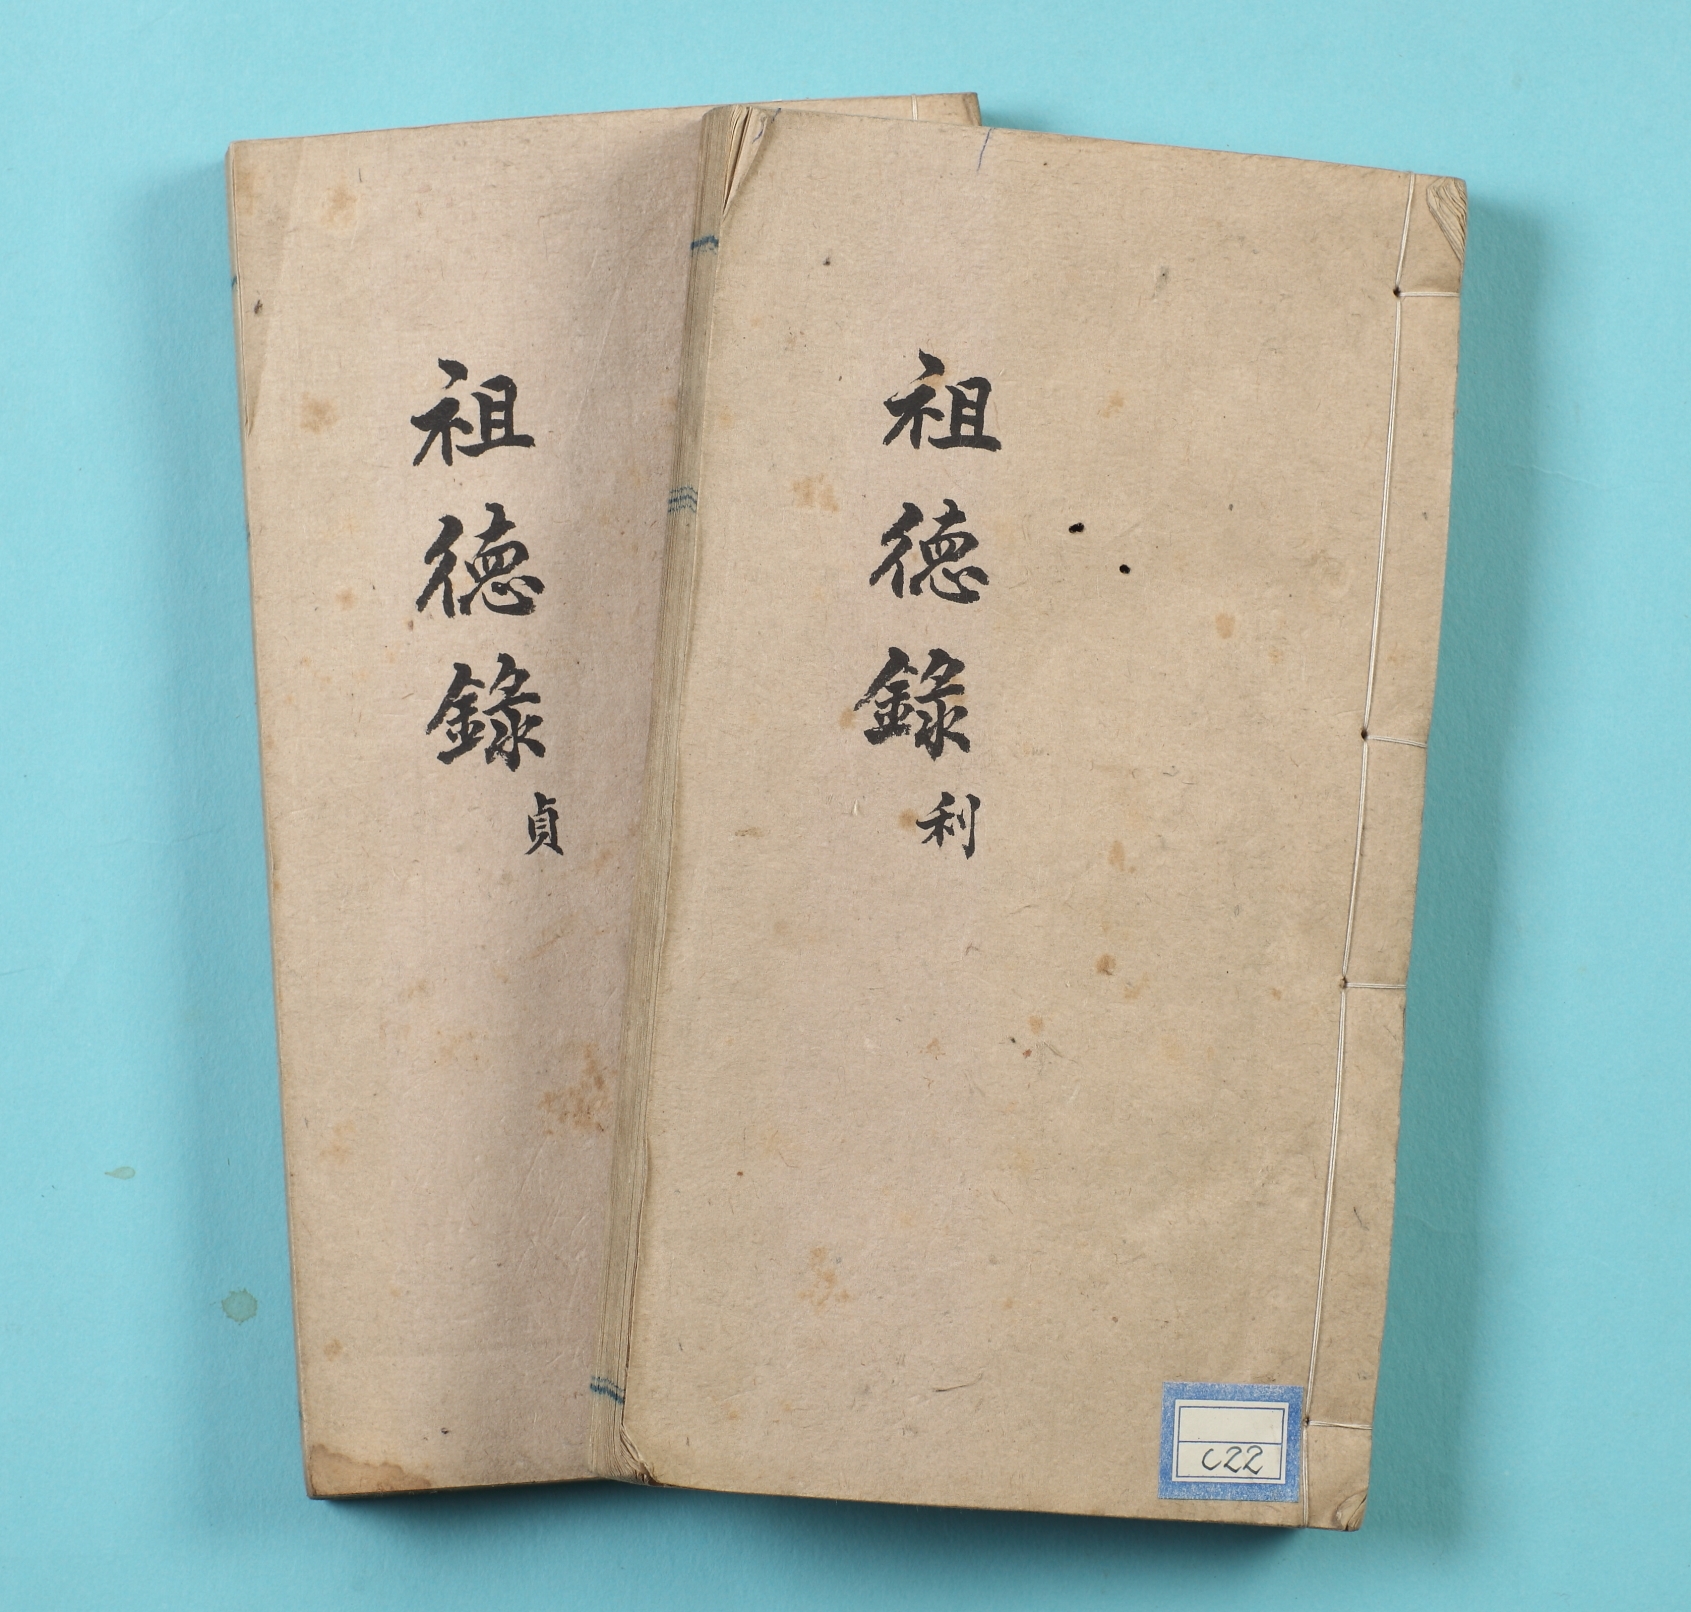 祖德錄
利
祖德錄
貞
C22